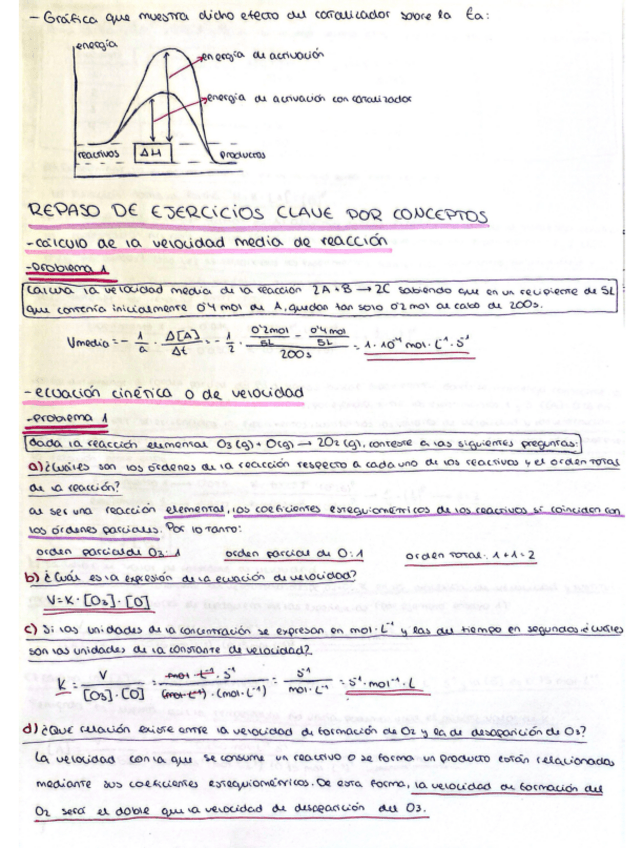 - Gráfica que muestra dicho efecto del catalizador sobre la Ea:
energía
energía de activación
energía de activación con catalizador
reactivos ΔH productos
REPASO DE EJERCICIOS CLAVE POR CONCEPTOS
- cálculo de la velocidad media de reacción
- problema 1
Calcula la velocidad media de la reacción 2A + B → 2C sabiendo que en un recipiente de 5L
que contenía inicialmente 0'4 mol de A, quedan tan solo 0'2 mol al cabo de 200s.
Vmedia = - 1/a · Δ[A]/Δt = - 1/2 · (0'2mol/5L - 0'4mol/5L)/200s = 1·10⁻⁴ mol·L⁻¹·s⁻¹
- ecuación cinética o de velocidad
- problema 1
Dada la reacción elemental O3(g) + O(g) → 2O2(g), conteste a las siguientes preguntas:
a) ¿Cuáles son los órdenes de la reacción respecto a cada uno de los reactivos y el orden total
de la reacción?
al ser una reacción elemental, los coeficientes estequiométricos de los reactivos sí coinciden con
los órdenes parciales. Por lo tanto:
orden parcial de O3: 1 orden parcial de O: 1 orden total: 1+1=2
b) ¿Cuál es la expresión de la ecuación de velocidad?
V=K·[O3]·[O]
c) Si las unidades de la concentración se expresan en mol·L⁻¹ y las del tiempo en segundos ¿cuáles
son las unidades de la constante de velocidad?
K = V/([O3]·[O]) = (mol·L⁻¹·s⁻¹)/((mol·L⁻¹)·(mol·L⁻¹)) = s⁻¹/(mol·L⁻¹) = s⁻¹·mol⁻¹·L
d) ¿Qué relación existe entre la velocidad de formación de O2 y la de desaparición de O3?
La velocidad con la que se consume un reactivo o se forma un producto están relacionadas
mediante sus coeficientes estequiométricos. De esta forma, la velocidad de formación del
O2 será el doble que la velocidad de desaparición del O3.